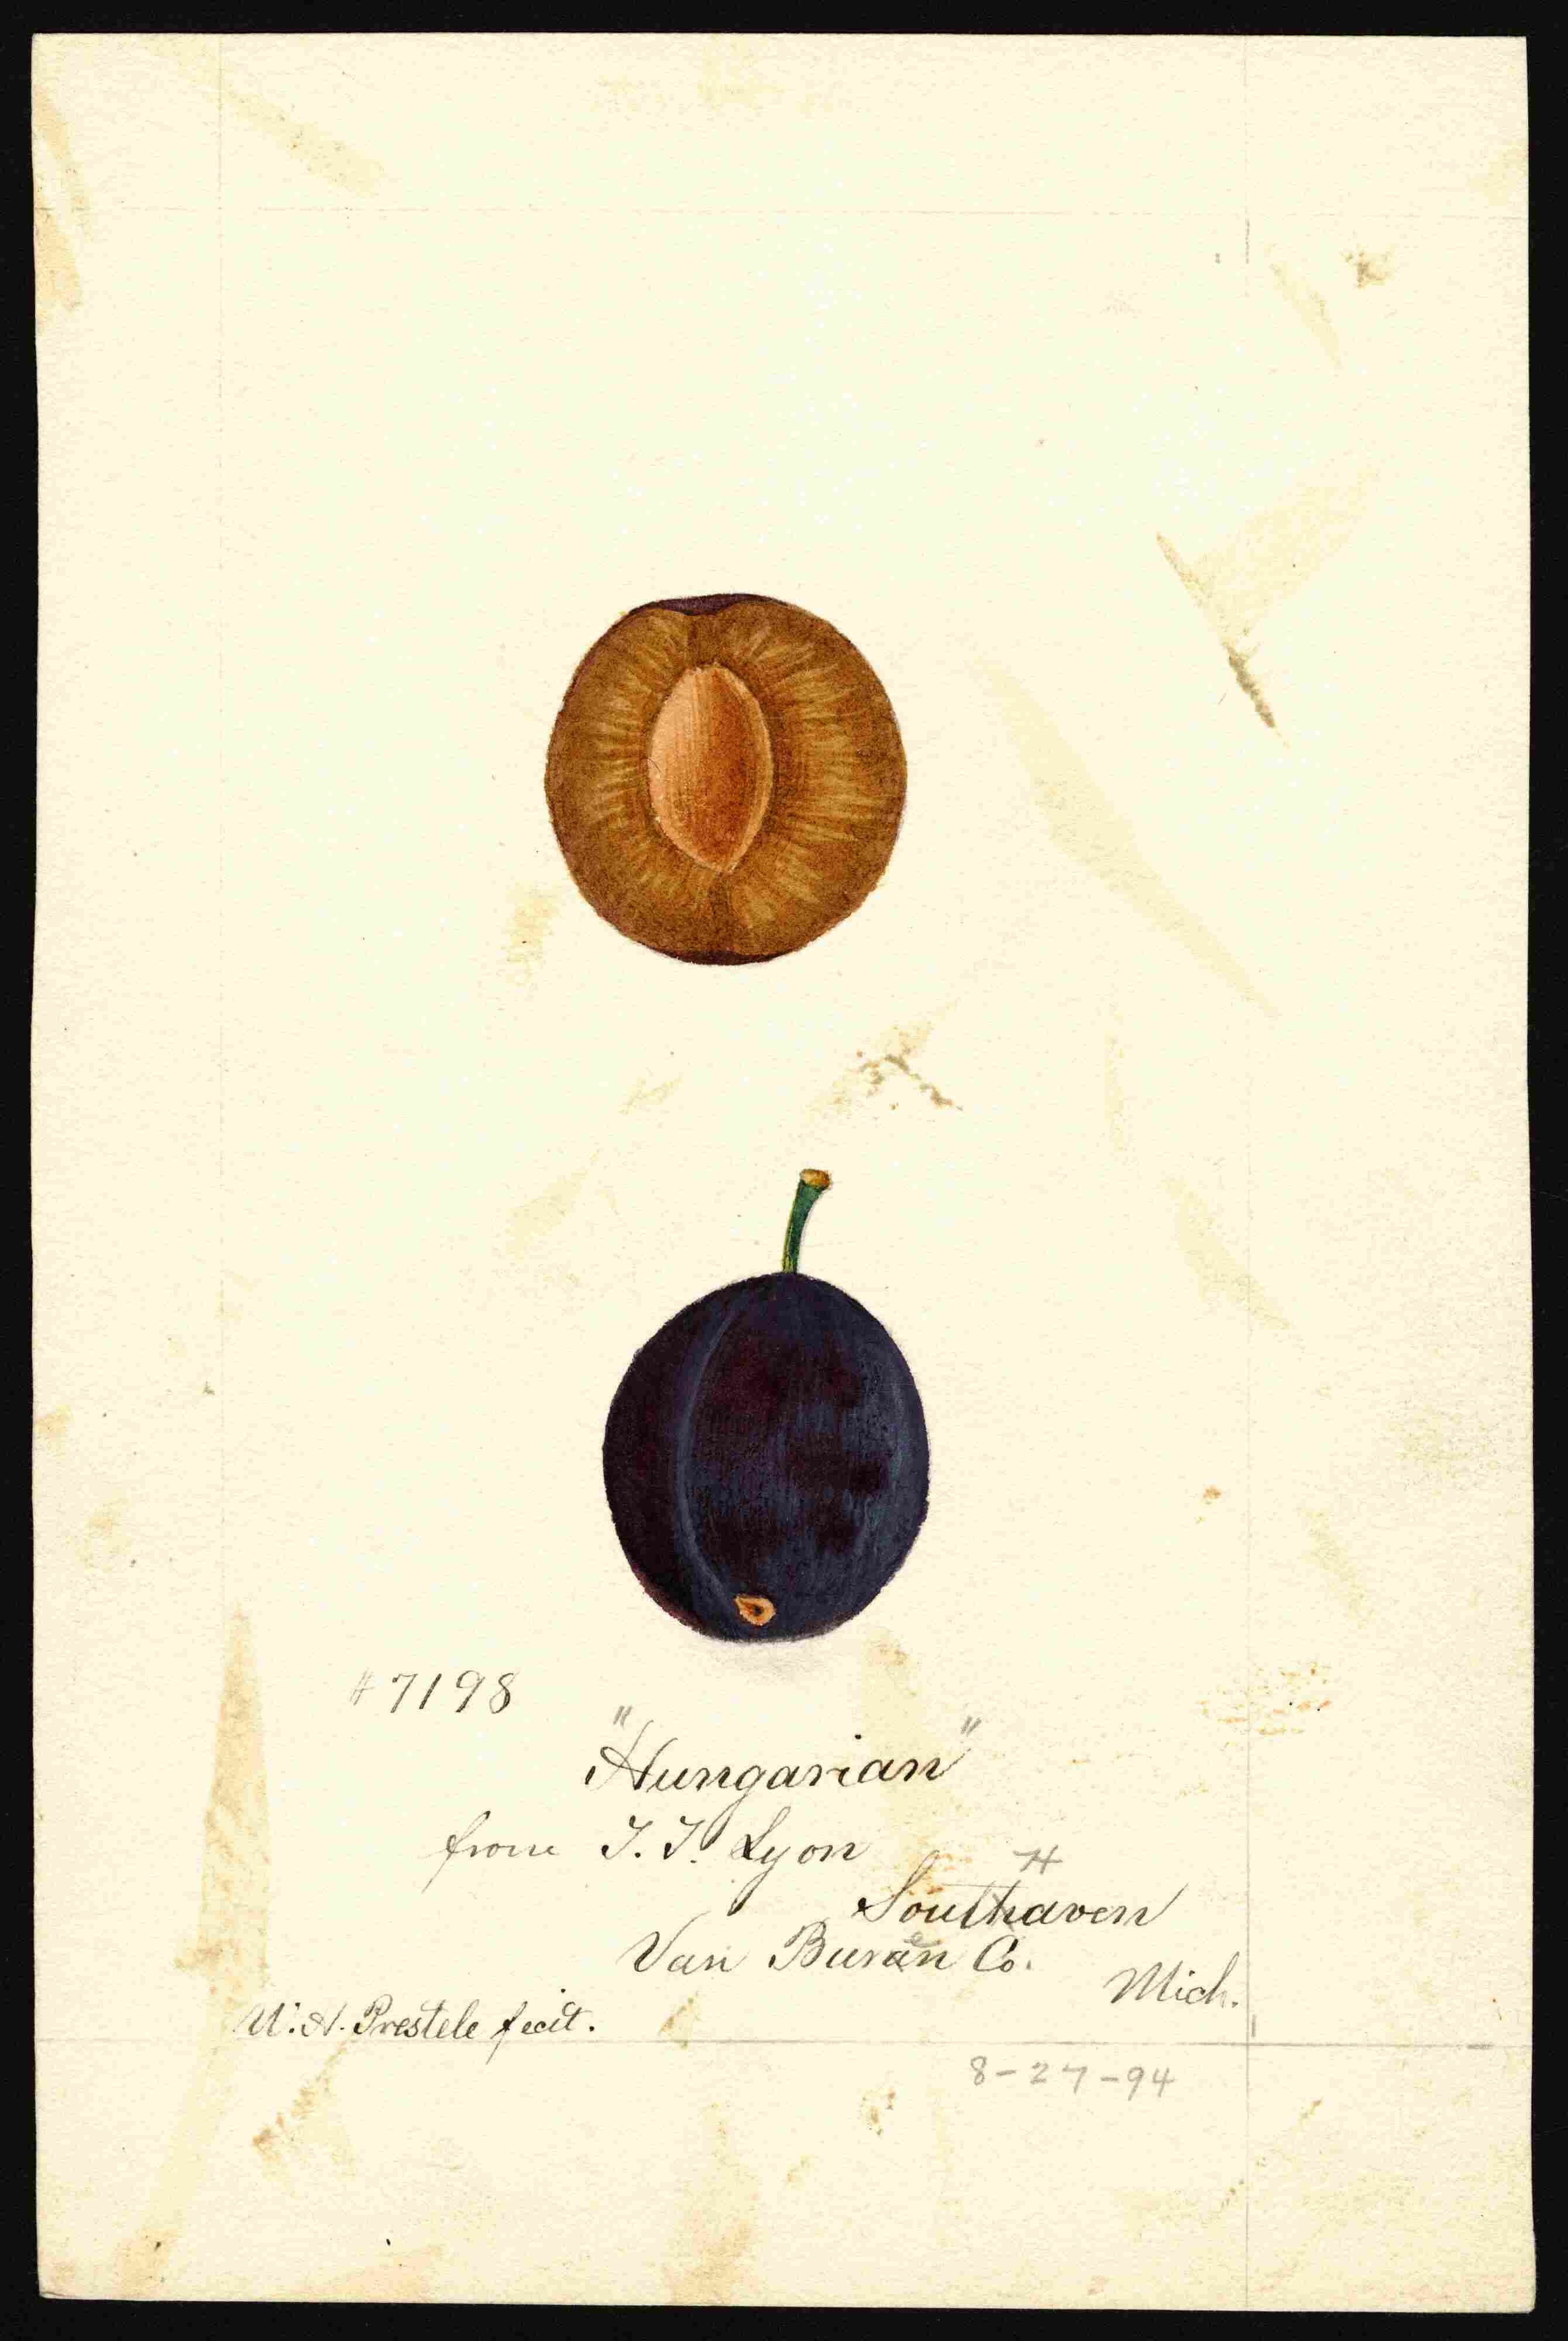 # 7198
"Hungarian"
from T. T. Lyon
H
Southaven
Van Buren Co.
Mich.
W. H. Prestele fecit.
8-27-94